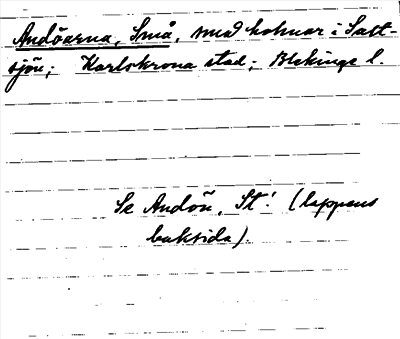 Andöarna, Små, med holmar i Salt-
sjön; Karlskrona stad; Blekinge l.
Se Andön, St. (lappens
baksida).